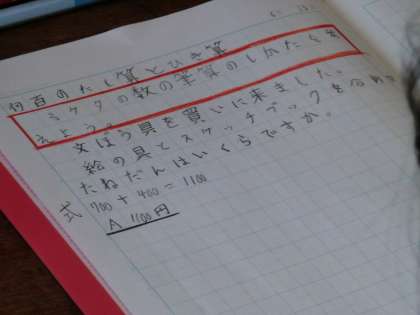 何百のたし算とひき算
3ケタの数の筆算のしかたを考
えよう。
文ぼう具を買いに来ました。
絵の具とスケッチブックを合わせ
たねだんはいくらですか。
式 700 + 400 = 1100
A 1100円